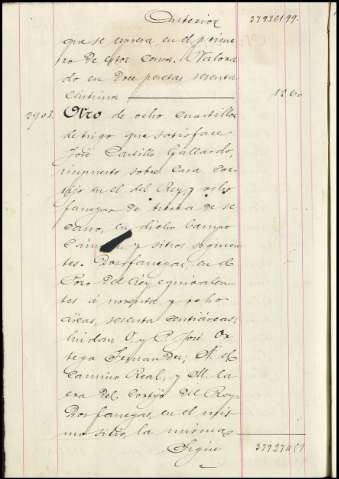 Anterior 37926199.
que se expresa en el prime-
ro de este censo. Valora-
do en doce pesetas sesenta
centimos 12 60
2903. Otro de ocho cuartillos
de trigo que satisface
José Castillo Gallardo,
impuesto sobre casa cor-
tijo en el del Rey, y ocho
fanegas de tierra de se-
cano, en dicho campo
y sitios siguien-
tes. Dos fanegas, en el
Pozo del Rey equivalen-
tes á noventa y ocho
áreas, sesenta centiáreas;
lindan O. y P. José Or-
tega Fernandez; N. el
Camino Real, y M. la
era del Cortijo del Rey.
Dos fanegas, en el mis-
mo sitio, la misma
Sigue